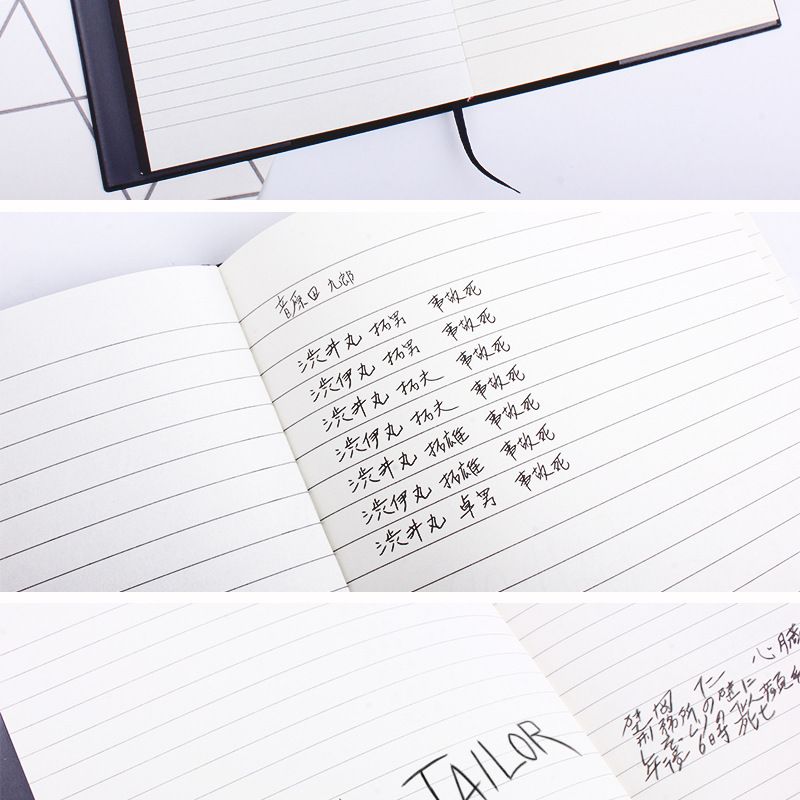 音原田 九郎
渋井丸 拓男 事故死
渋伊丸 拓男 事故死
渋井丸 拓夫 事故死
渋伊丸 拓夫 事故死
渋井丸 拓雄 事故死
渋伊丸 拓雄 事故死
渋井丸 卓男 事故死
仁 心臓
刑務所の壁に
6時 死亡
TAILOR